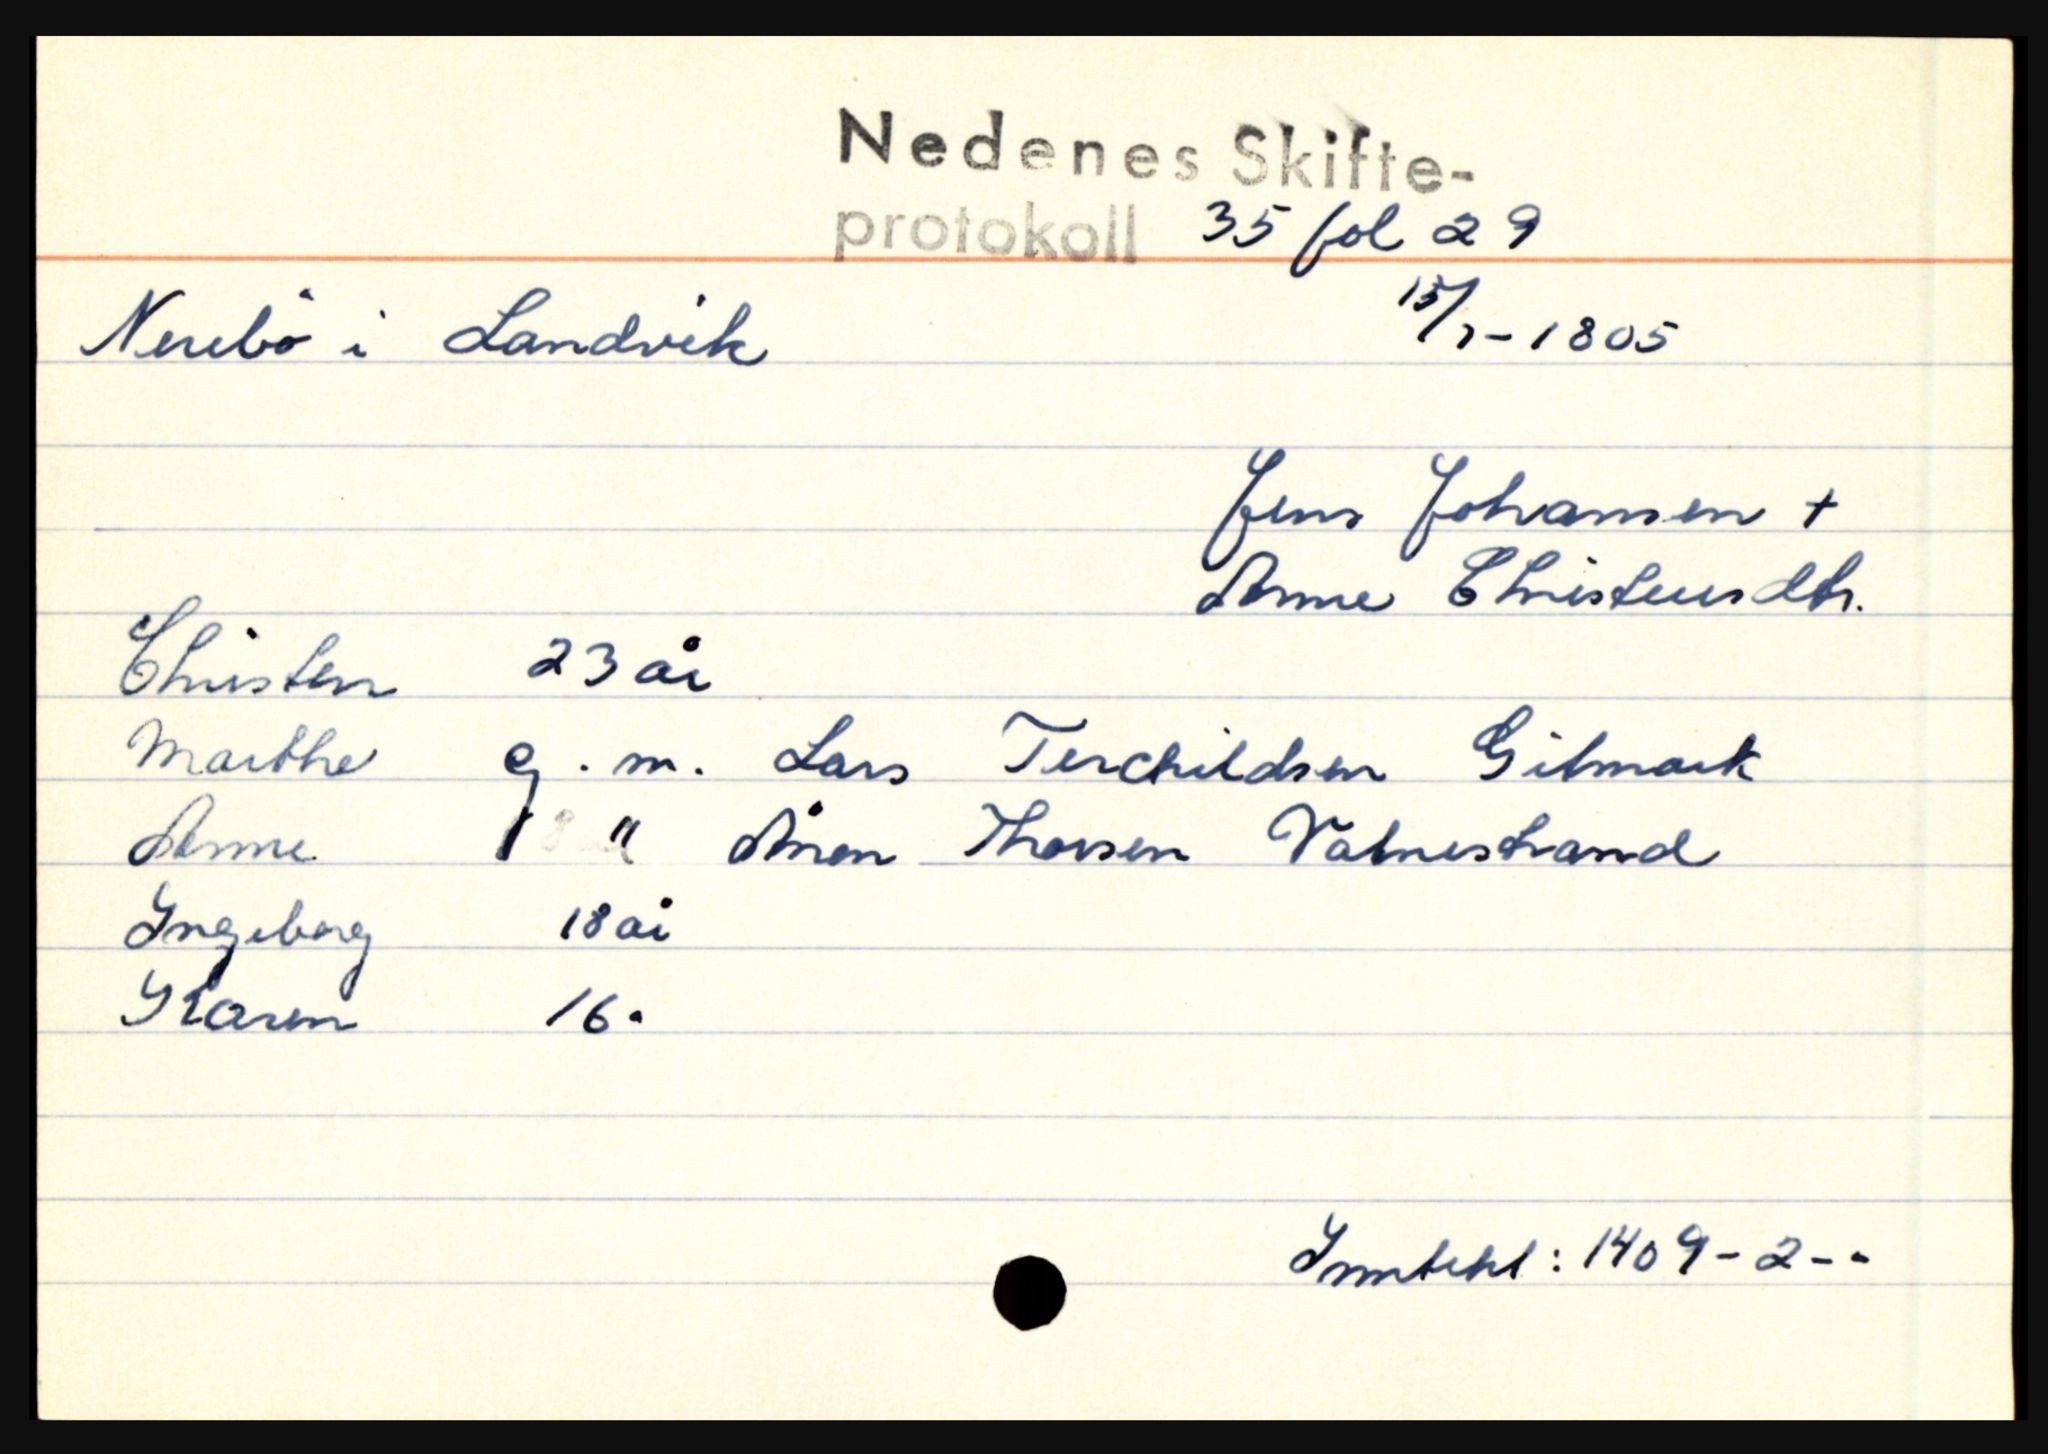 Nedenes Skifte-
protokoll 35 fol 29
Nerebö i Landvik 15/7-1805
Jens Johansen +
Anne Christensdtr.
Christen 23 år
Marthe g. m. Lars Terchildsen Gitmark
Anne " Anon Thorsen Vatnestrand
Ingeborg 18 år
Karen 16 "
Inntekt: 1409-2-"